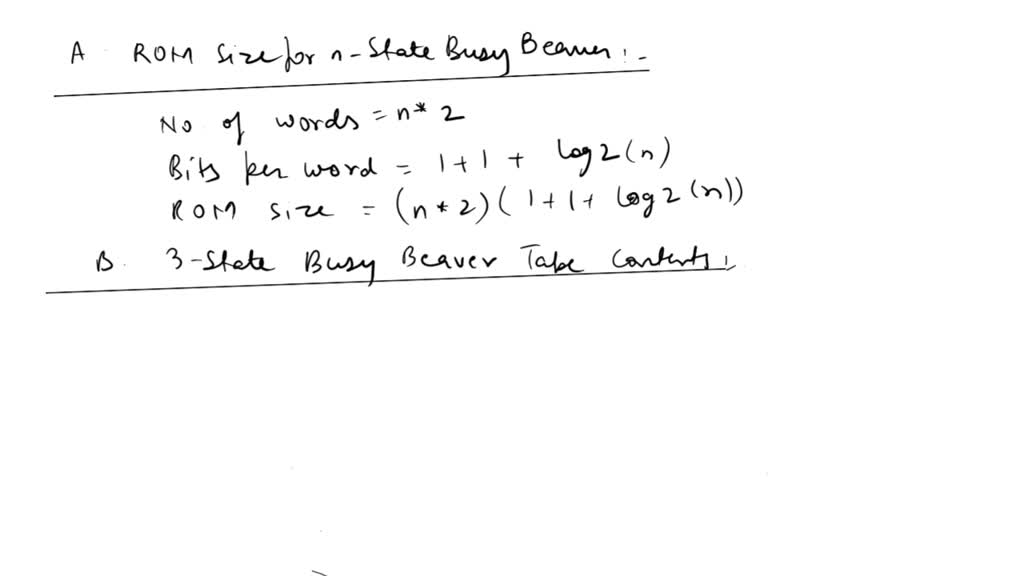 A. ROM Size for n-State Busy Beaver:-
No. of words = n* 2
Bits per word = 1+1 + log2(n)
ROM size = (n*2)(1+1+ log2(n))
B. 3-State Busy Beaver Tape Contents: